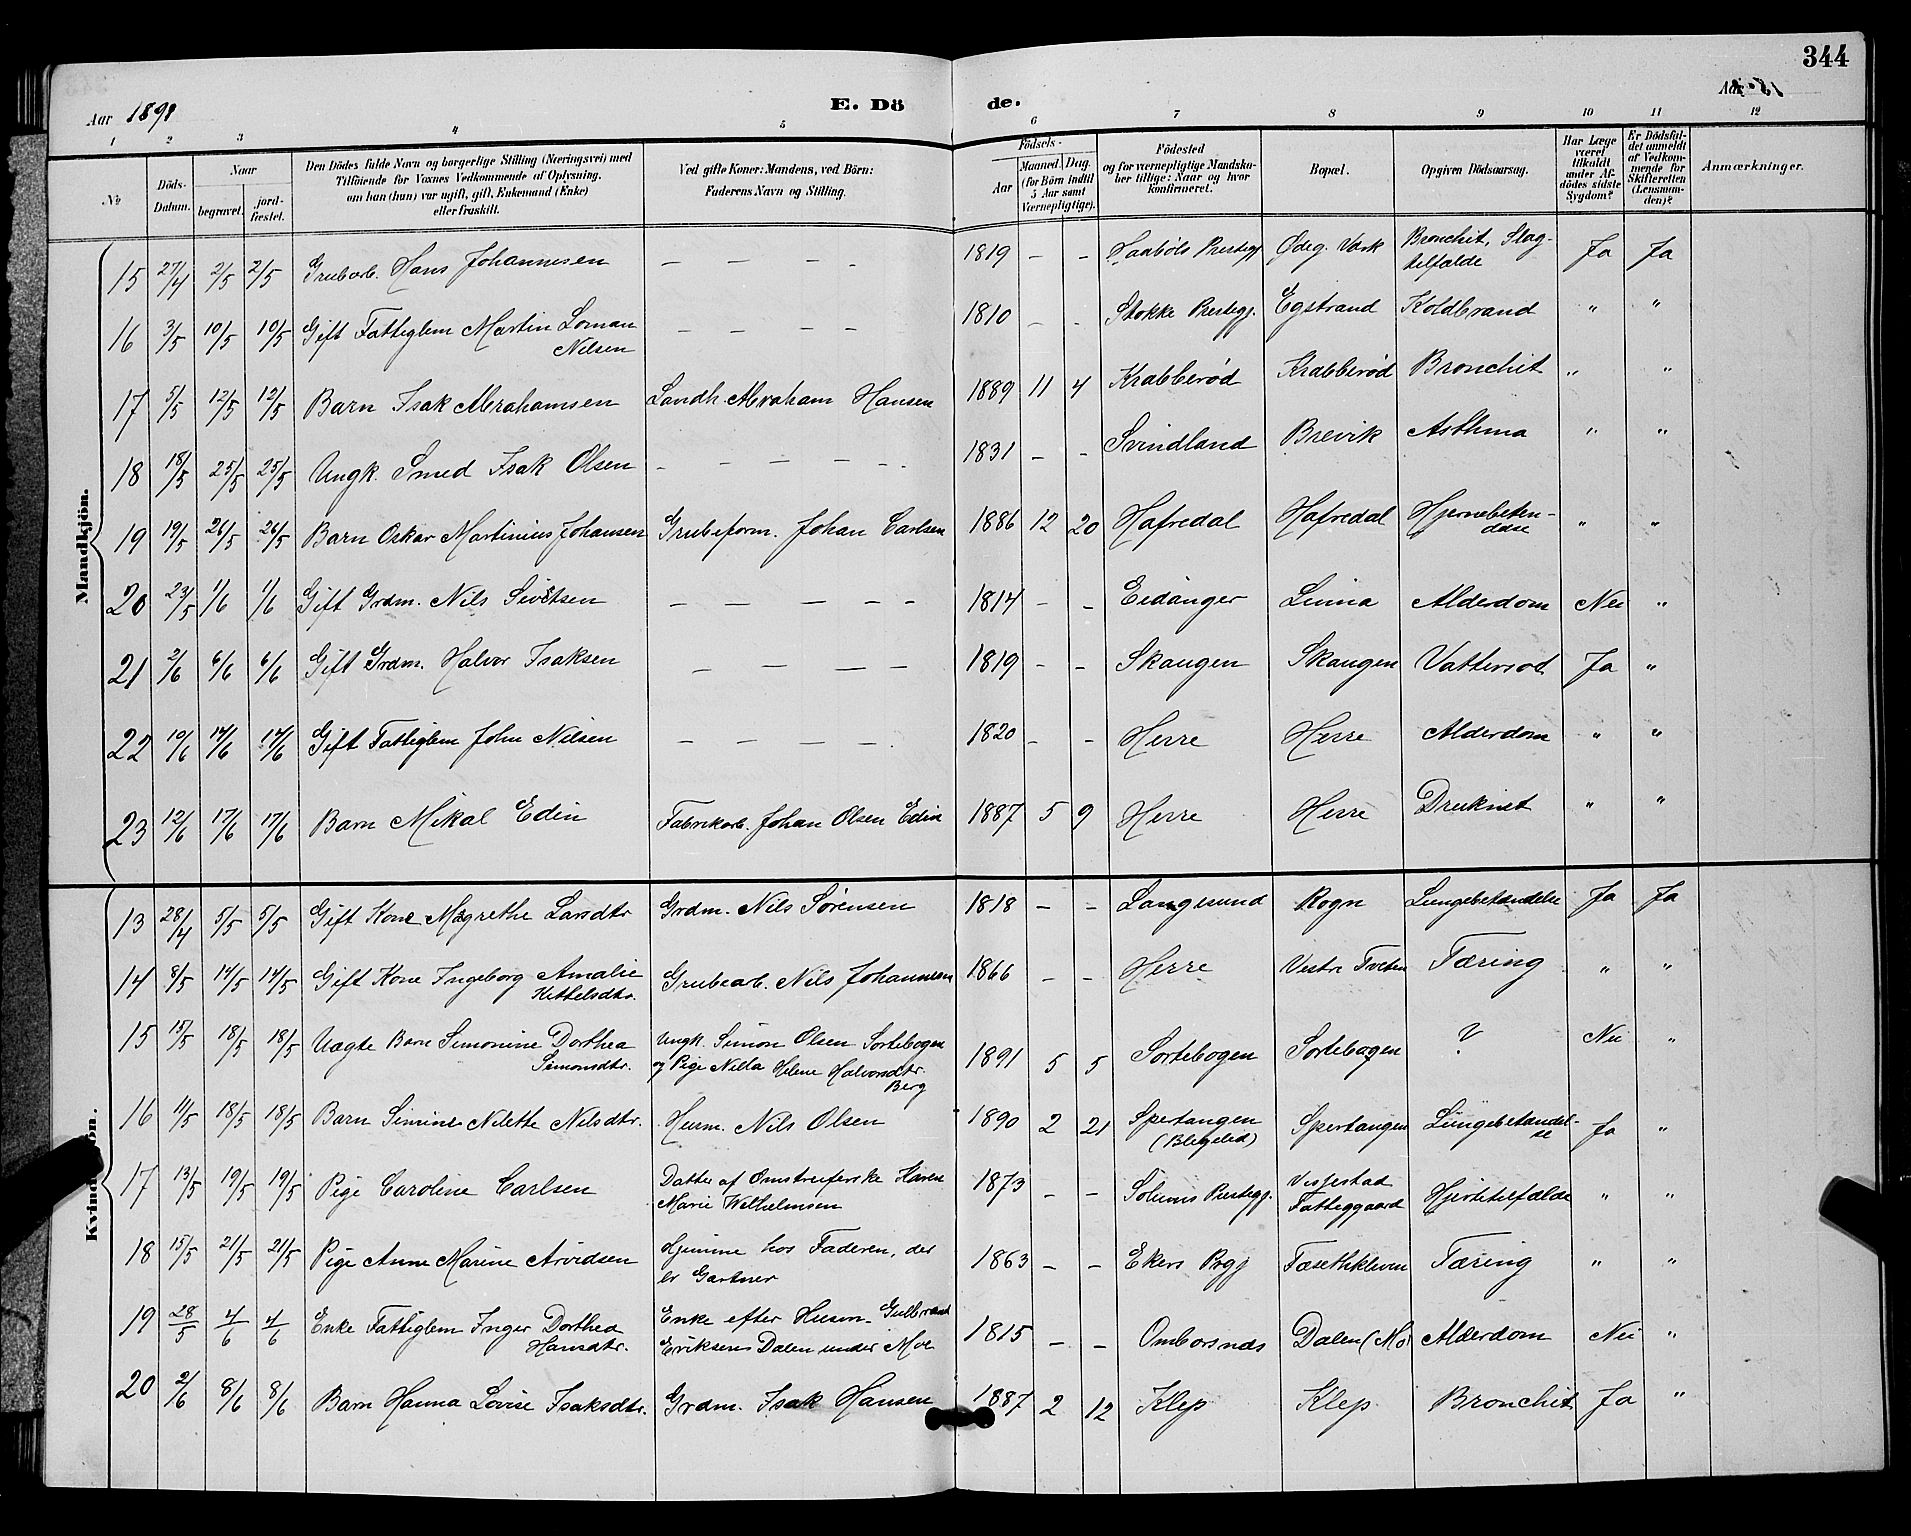 344
Aar 1891
E. Döde.
1 2 3 4 5 6 7 8 9 10 11 12
No
Döds-Datum.
Naar
begravet.
jord-fæstet.
Den Dödes fulde Navn og borgerlige Stilling (Næringsvei) med
Tilföiende for Voxnes Vedkommende af Oplysning,
om han (hun) var ugift, gift, Enkemand (Enke)
eller fraskilt.
Ved gifte Koner: Mandens, ved Börn:
Faderens Navn og Stilling.
Födsels-
Aar
Maaned. Dag.
(for Börn indtil
5 Aar samt
Værnepligtige).
Födested
og for værnepligtige Mandska-
ber tillige: Naar og hvor
konfirmeret.
Bopæl.
Opgiven Dödsaarsag.
Har Læge
været
tilkaldt
under Af-
dödes sidste
Sygdom?
Er Dödsfal-
det anmeldt
af Vedkom-
mende for
Skifteretten
(Lensman-
den)?
Anmærkninger.
Mandkjön.
15 27/4 2/5 2/5 Grubearb. Hans Johannesen — — — - 1819 - - Prestegj. Ødeg. Vask Bronchit, Slag-
tilfælde Ja Ja
16 3/5 10/5 10/5 Gift Fattiglem Martin Loman
Nilsen — — — — 1810 - - Stokke Prestegj. Egstrand Koldbrand " "
17 5/5 12/5 12/5 Barn Isak Abrahamsen Landh. Abraham Hansen 1889 11 4 Krabberød Krabberød Bronchit " "
18 18/5 25/5 25/5 Ungk. Smed Isak Olsen - — — — - - 1831 - - Svindland Brevik Asthma " "
19 19/5 26/5 26/5 Barn Oskar Martinius Johansen Grubeform. Johan Carlsen 1886 12 20 Hafredal Hafredal Hjernebeten-
delse " "
20 23/5 1/6 1/6 Gift Grdm. Nils Sivertsen — — — — — 1814 - - Eidanger Linna Alderdom Nei "
21 2/6 6/6 6/6 Gift Grdm. Halvor Isaksen — — — — 1819 - - Skaugen Skaugen Vattersod Ja "
22 10/6 14/6 14/6 Gift Fattiglem John Nilsen — — — — 1820 - - Herre Herre Alderdom " "
23 12/6 17/6 17/6 Barn Mikal Edin Fabrikarb. Johan Olsen Edin 1887 5 9 Herre Herre Druknet " "
Kvindekjön.
13 28/4 5/5 5/5 Gift Kone Magrethe Larsdtr Grdm. Nils Sørensen 1818 - - Langesund Rogn Lungebetændelse Ja Ja
14 8/5 14/5 14/5 Gift Kone Ingeborg Amalie
Kittelsdtr. Grubearb. Nils Johannesen 1866 - - Herre Vestre Tveten Tæring " "
15 15/5 18/5 18/5 Uægte Barn Simonine Dorthea
Simonsdtr. Ungk. Simon Olsen Sortebogen
og Pige Nilla Helene Halvorsdtr.
Berg 1891 5 5 Sortebogen Sortebogen ? Nei "
16 11/5 18/5 18/5 Barn Simine Nilette Nilsdtr. Husm. Nils Olsen 1890 2 21 Spertangen
Spertangen Lungebetændel-
se Ja "
17 13/5 19/5 19/5 Pige Caroline Carlsen Datter af Omstreiferske Karen
Marie Wilhelmsen 1873 - - Solums Prestegj. Vissestad
Fattiggaard Hjertetilfælde " "
18 15/5 21/5 21/5 Pige Anne Marine Arvidsen Hjemme hos Faderen, der
er Gartner 1863 - - Ekers Prgj Tæring " "
19 28/5 4/6 4/6 Enke Fattiglem Inger Dorthea
Hansdtr. Enke efter Husm. Gulbrand
Eriksen Dalen under Moe 1815 - - Omborsnæs Dalen (Mo) Alderdom Nei "
20 2/6 8/6 8/6 Barn Hanna Lovise Isaksdtr. Grdm. Isak Hansen 1887 2 12 Klep Klep Bronchit Ja "